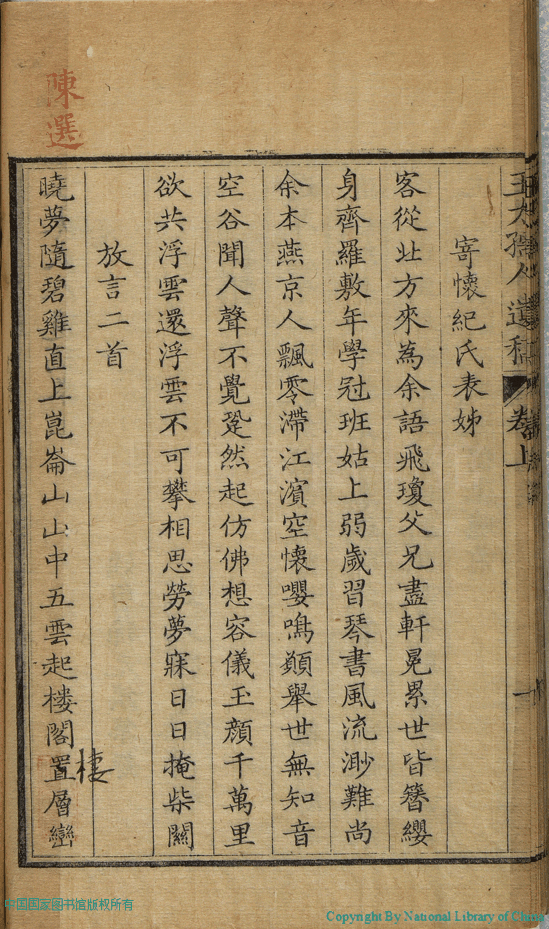 王太孺人遺稿 卷上
一
寄懷紀氏表姊
客從北方來為余語飛瓊父兄盡軒冕累世皆簪纓
身齊羅敷年學冠班姑上弱歲習琴書風流渺難尚
余本燕京人飄零滯江濱空懷嚶鳴願舉世無知音
空谷聞人聲不覺跫然起仿佛想容儀玉顏千萬里
欲共浮雲還浮雲不可攀相思勞夢寐日日掩柴關
放言二首
曉夢隨碧雞直上崑崙山山中五雲起樓閣置層巒
棲
陳選
中国国家图书馆版权所有
Copyright By National Library of China